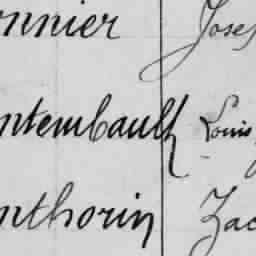 onnier Jose
ntembault Louis
nthorin Zac